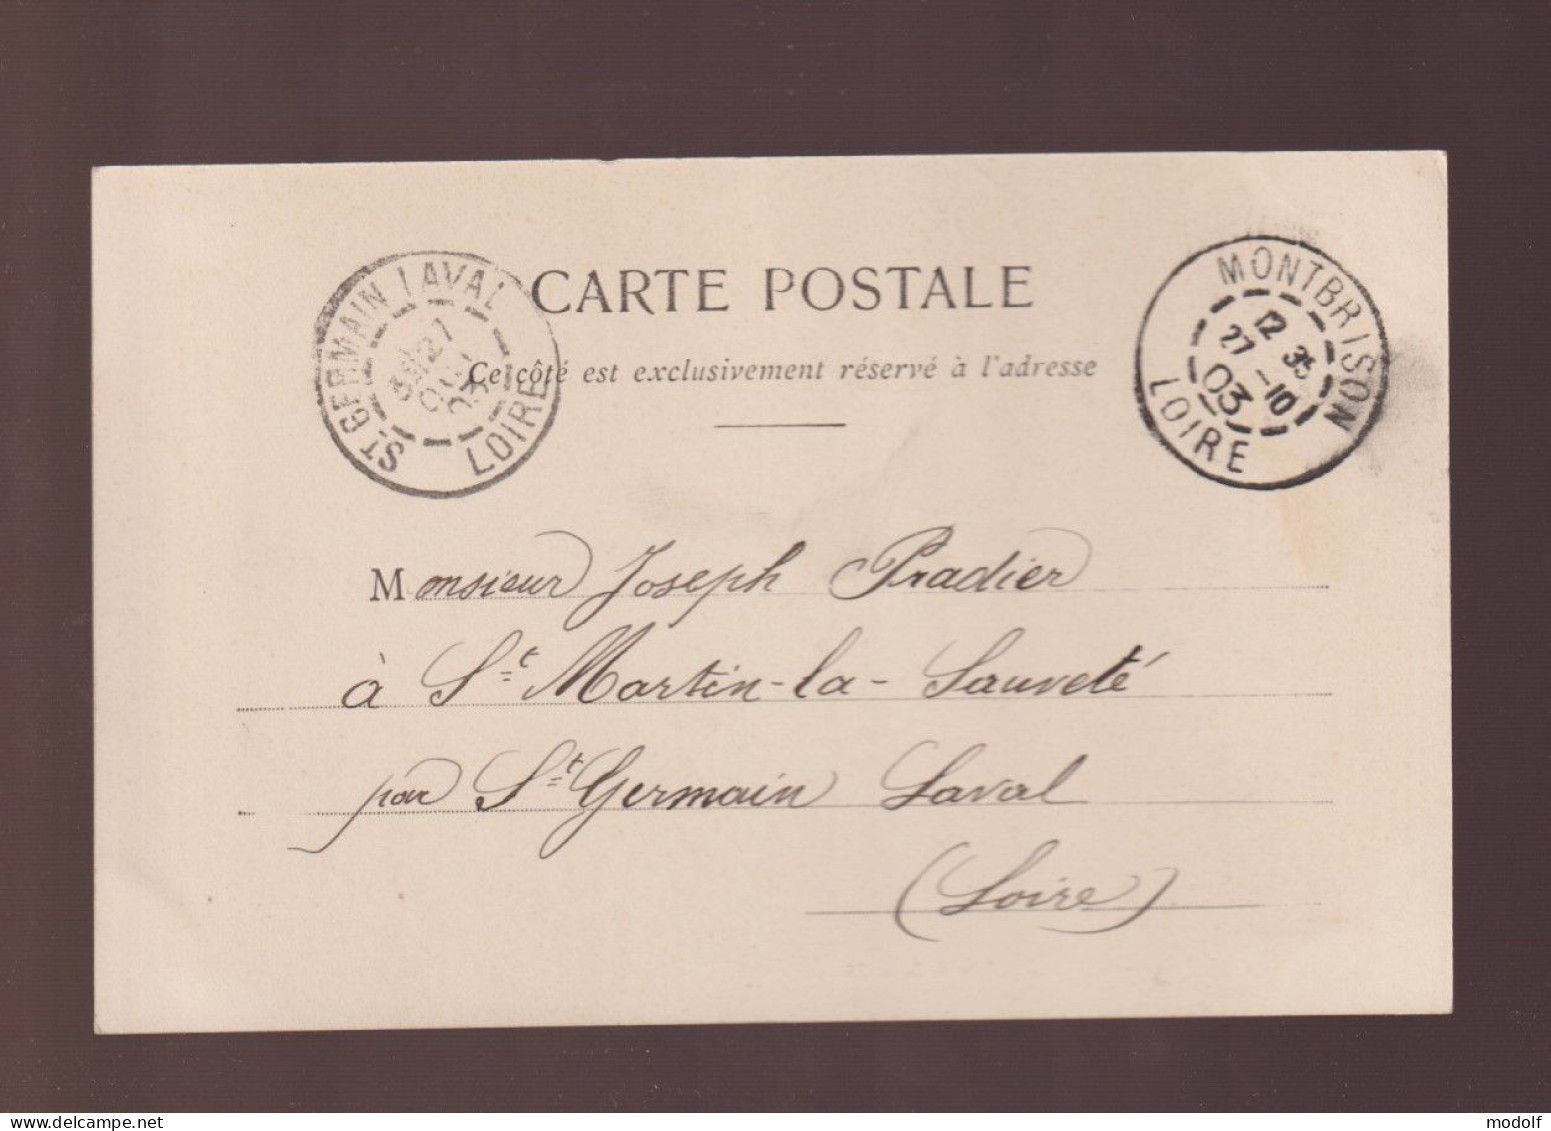 CARTE POSTALE
Ce côté est exclusivement réservé à l'adresse
ST GERMAIN LAVAL
27
03
LOIRE
MONTBRISON
12 35
27 -10
03
LOIRE
Monsieur Joseph Pradier
à St Martin-la-Sauveté
par St Germain Laval
(Loire)
www.delcampe.net
modolf